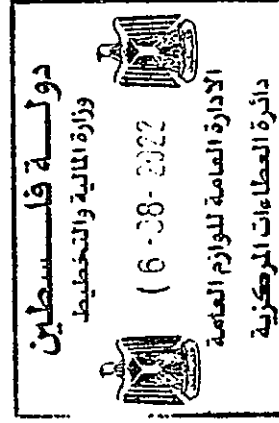 دولة فلسطين
وزارة المالية والتخطيط
16-08-2022
الادارة العامة للوازم العامة
دائرة العطاءات المركزية